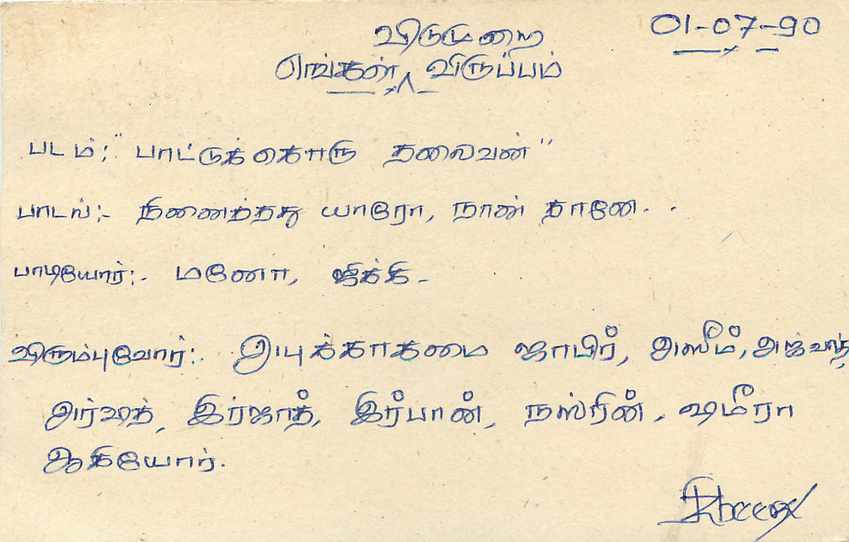 01-07-90
விடுமுறை
எங்கள் விருப்பம்
படம்:- "பாட்டுக்கொரு தலைவன்"
பாடல்:- நினைத்தது யாரோ, நான் தானே..
பாடியோர்:- மனோ, ஜிக்கி-
விரும்புவோர்:- அயுக்காதமை ஜாபிர், அஸீம், அஜ்வாத்,
அர்ஷத், இர்ஜாத், இர்பான், நஸ்ரின், ஷமீரா
ஆகியோர்.